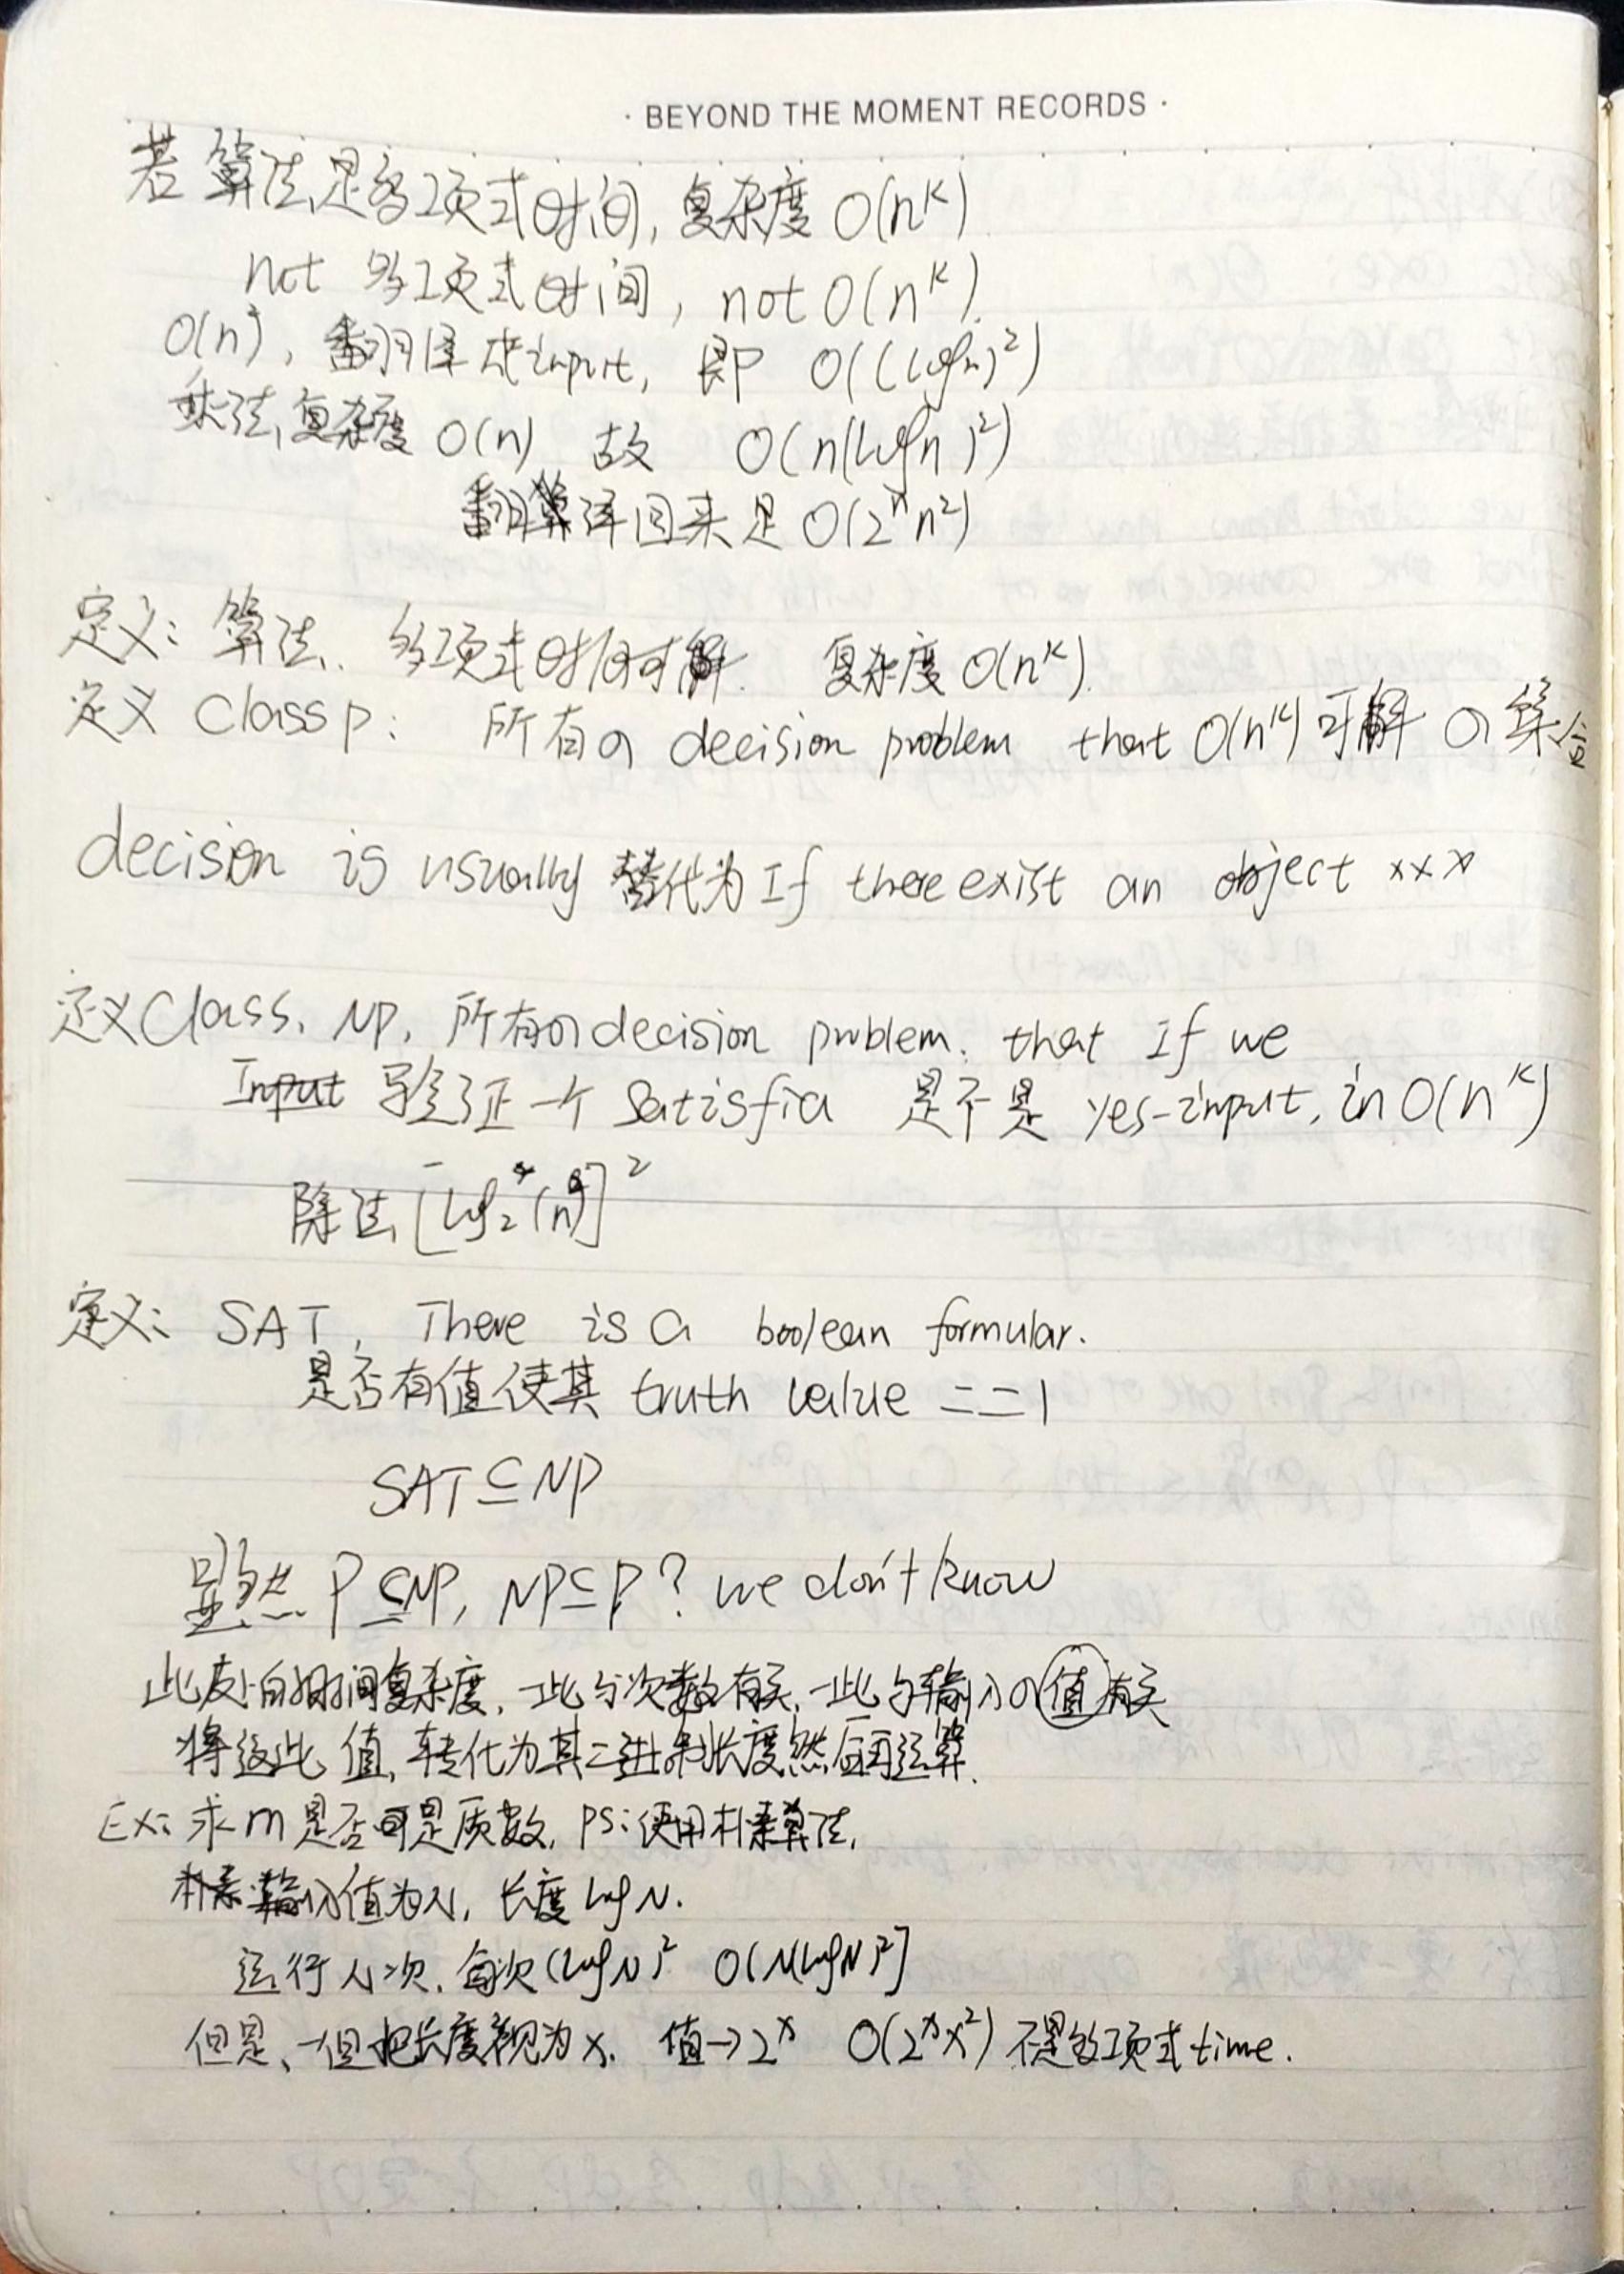 · BEYOND THE MOMENT RECORDS ·
若算法是多项式时间, 复杂度 O(n^k)
not 多项式时间, not O(n^k).
O(n²), 翻译成input, 即 O((logn)²)
乘法,复杂度 O(n) 故 O(n(logn)²)
翻译回来是 O(2ⁿn²)
定义: 算法. 多项式时间可解. 复杂度 O(n^k).
定义 Class P: 所有の decision problem that O(n^k) 可解 の集合
decision is usually 替代为 If there exist an object xxx
定义 Class. NP. 所有の decision problem. that If we
Input 验证一个 satisfia 是不是 yes-input, in O(n^k)
除法 [log₂(n)]²
定义: SAT, There is a boolean formular.
是否有值使其 truth value ==1
SAT⊆NP
显然 P⊆NP, NP⊆P? we don't know
此处的时间复杂度, 一些与次数有关, 一些与输入の值有关
将这些值, 转化为其二进制长度,然后再运算.
Ex: 求 m 是否可是质数, PS: 使用朴素算法,
朴素输入值为N, 长度 logN.
运行N次, 每次(logN)² O(N(logN)²]
但是、一但把长度视为x. 值→2^x O(2^x x²) 不是多项式time.